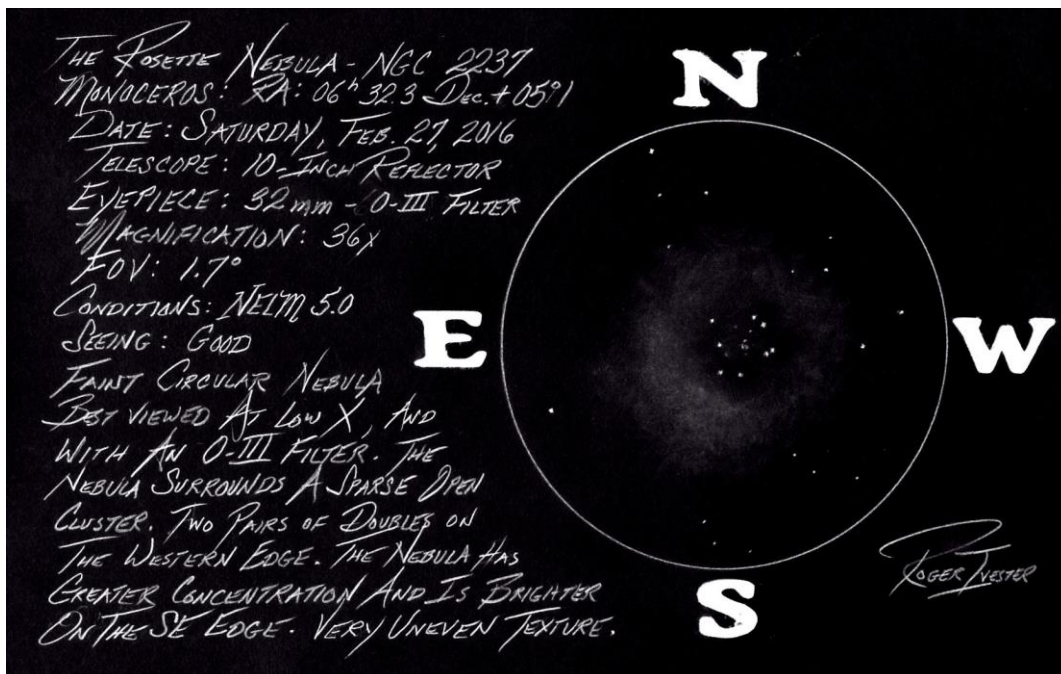 The Rosette Nebula - NGC 2237
Monoceros: RA: 06ʰ 32.3 Dec. + 05°1
Date: Saturday, Feb. 27, 2016
Telescope: 10-Inch Reflector
Eyepiece: 32mm - O-III Filter
Magnification: 36x
FOV: 1.7°
Conditions: NELM 5.0
Seeing: Good
Faint Circular Nebula
Best Viewed At Low X, And
With An O-III Filter. The
Nebula Surrounds A Sparse Open
Cluster. Two Pairs of Doubles on
The Western Edge. The Nebula Has
Greater Concentration And Is Brighter
On The SE Edge. Very Uneven Texture.
N
E
W
S
Roger Ivester